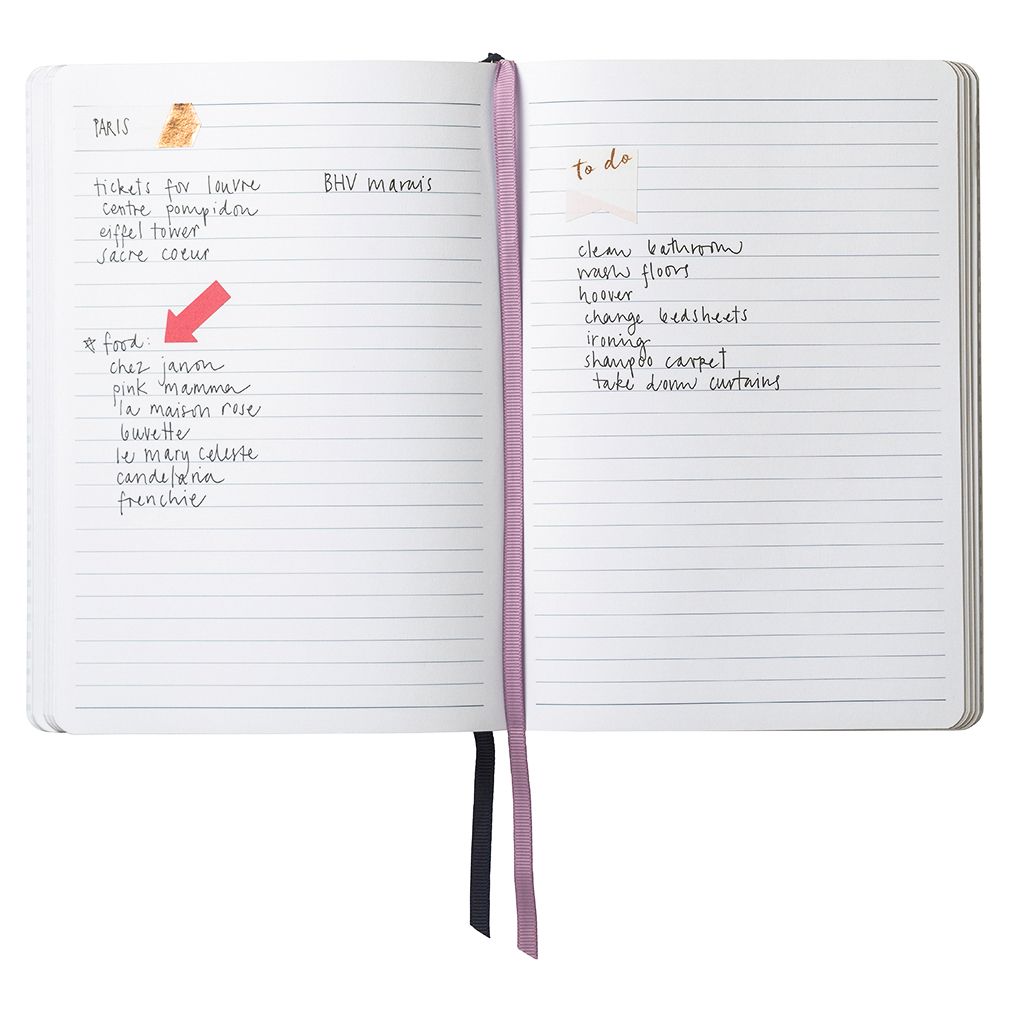 PARIS
tickets for louvre
centre pompidou
eiffel tower
sacre coeur
BHV marais
☆ food:
chez janou
pink mamma
la maison rose
buvette
le mary celeste
candelaria
frenchie
to do
clean bathroom
wash floors
hoover
change bedsheets
ironing
shampoo carpet
take down curtains